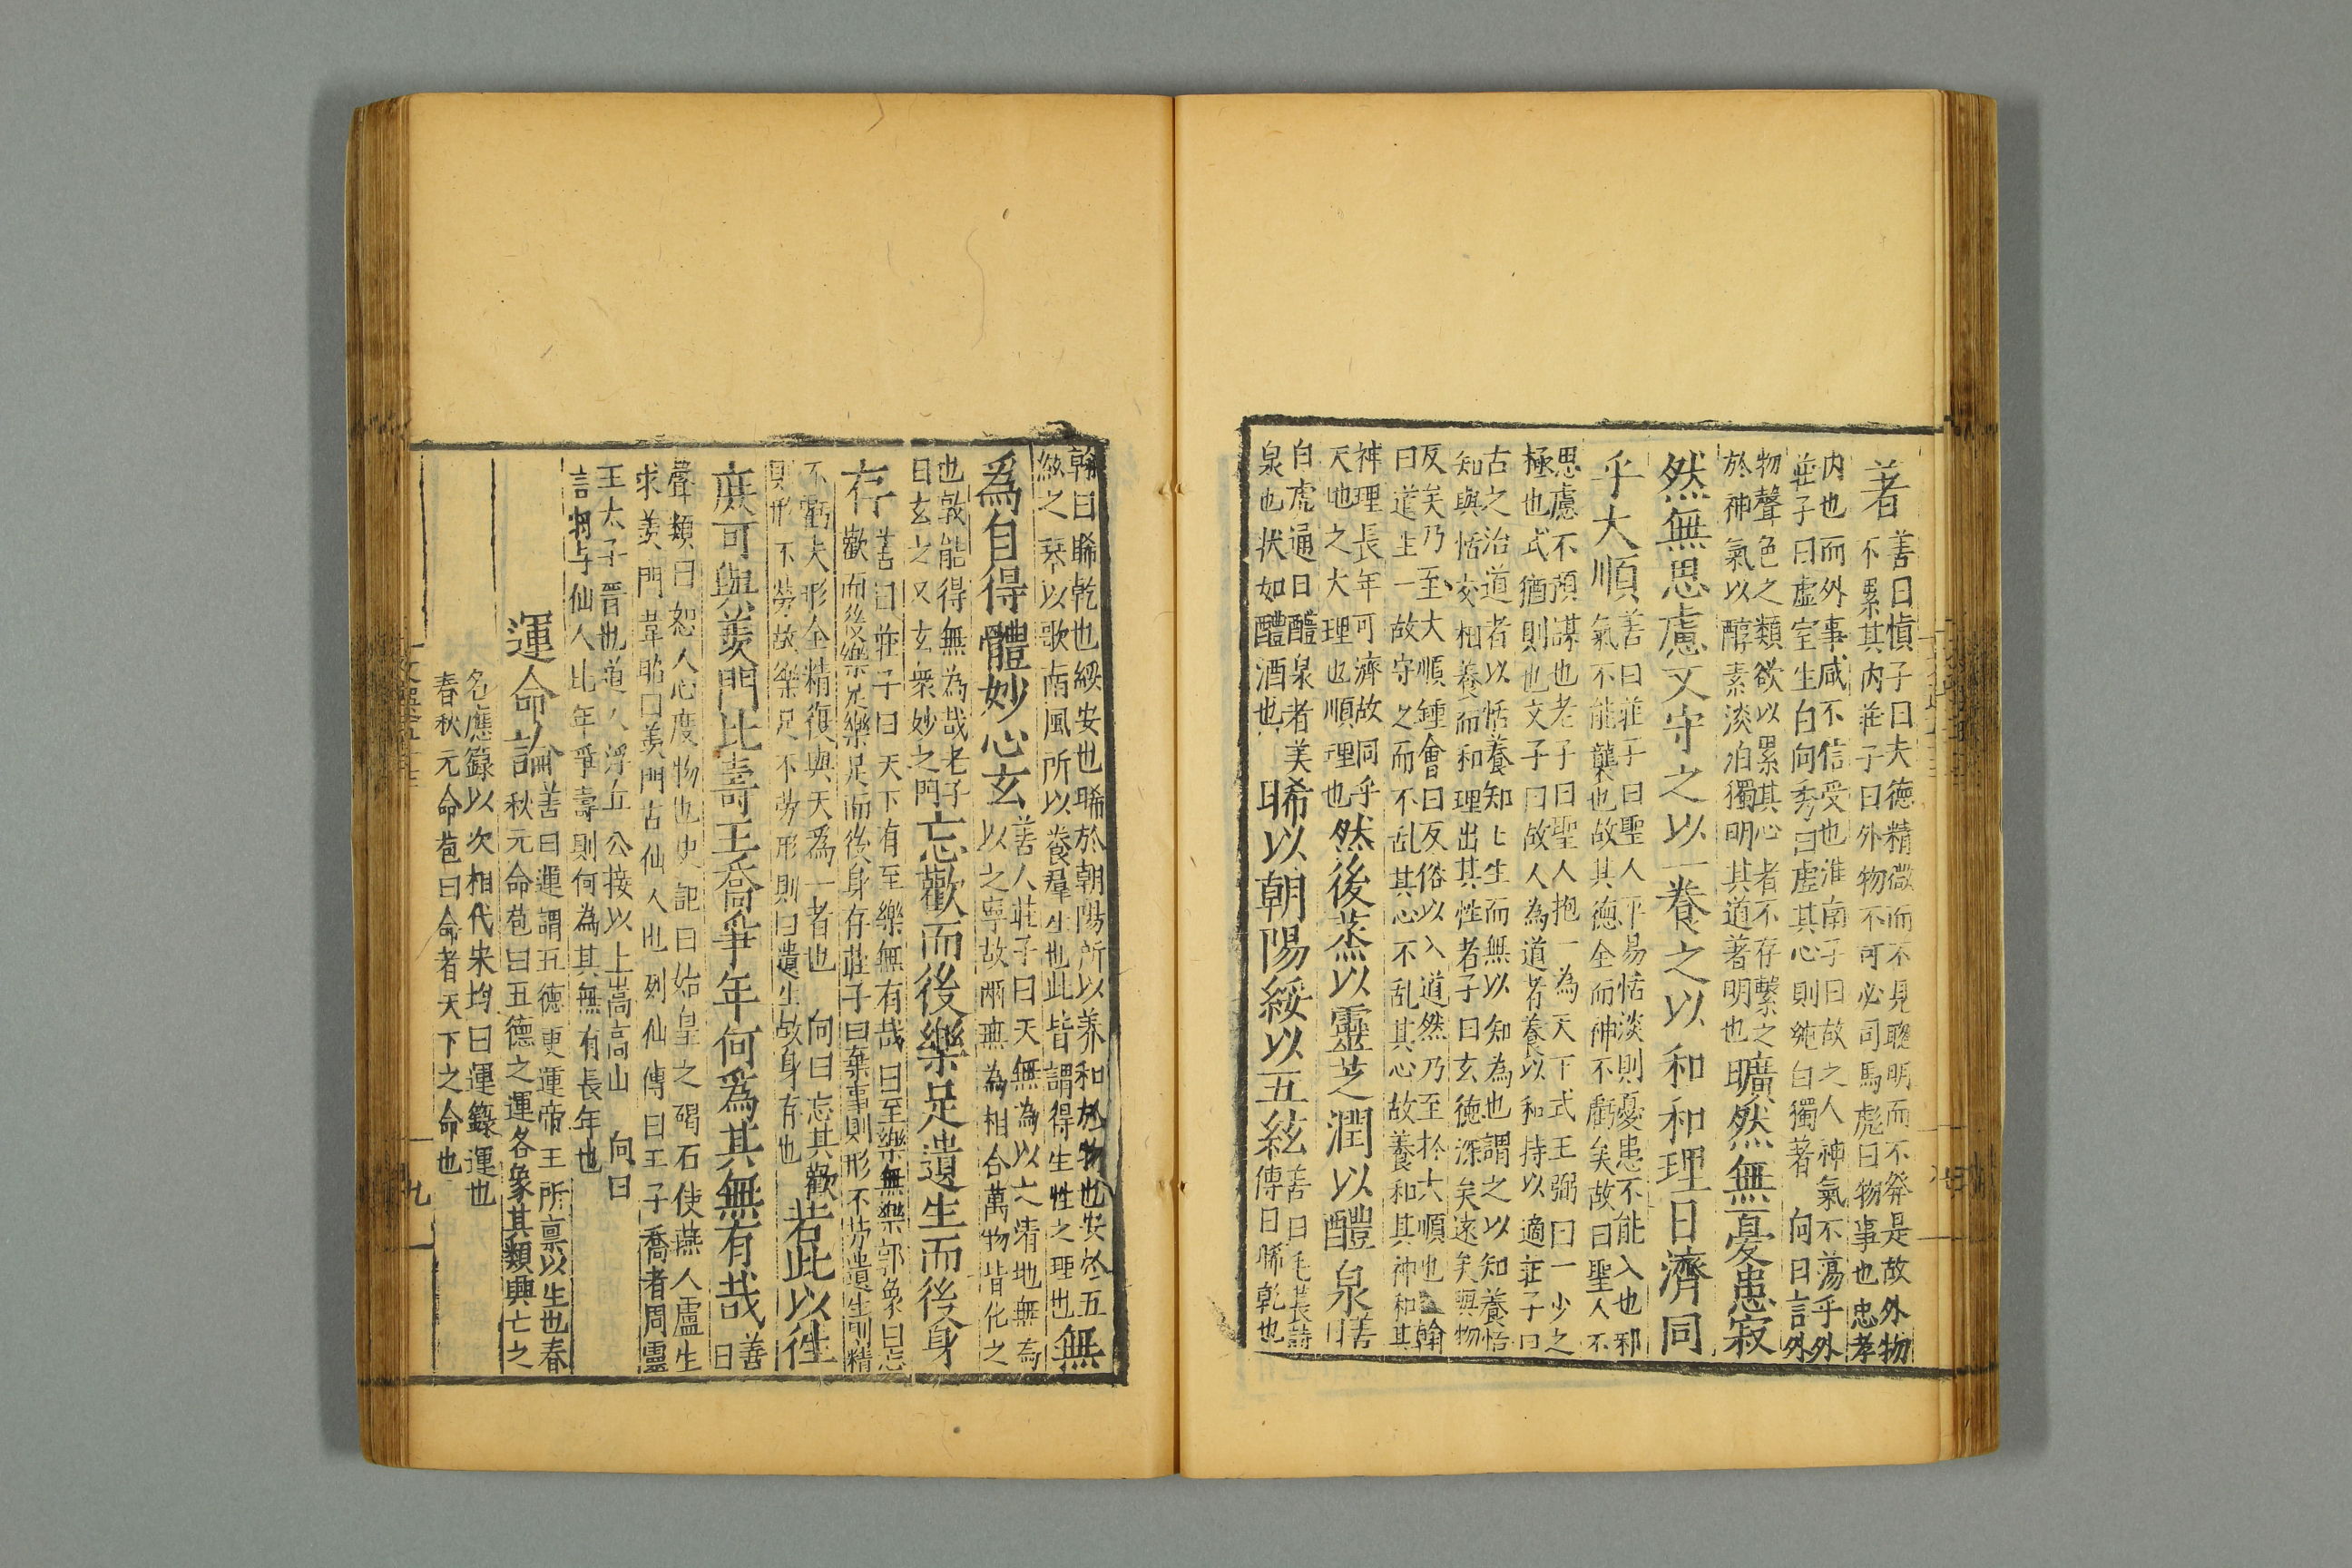 著善曰慎子曰夫德精微而不見聰明而不發是故外物不累其内莊子曰外物不可必司馬彪曰物事也忠孝
内也而外事咸不信受也淮南子曰故之人神氣不蕩乎外莊子曰虛室生白向秀曰虛其心則純白獨著 向曰言外
物聲色之類欲以累其心者不存繫之於神氣以醇素淡泊獨明其道著明也曠然無憂患寂
然無思慮又守之以一養之以和和理日濟同
乎大順善曰莊子曰聖人平易恬淡則憂患不能入也邪氣不能襲也故其德全而神不虧矣故曰聖人不
思慮不預謀也老子曰聖人抱一為天下式王弼曰一少之極也式猶則也文子曰故人為道者養以和持以適莊子曰
古之治道者以恬養知〻生而無以知為也謂之以知養恬知與恬交相養而和理出其性老子曰玄德深矣遠矣與物
反矣乃至大順鍾會曰反俗以入道然乃至於大順也翰曰道生一故守之而不乱其心不乱其心故養和其神和其
神理長年可濟故同乎天地之大理也順理也然後蒸以靈芝潤以醴泉善曰
白虎通曰醴泉者美泉也状如醴酒也晞以朝陽綏以五絃善曰毛萇詩傳曰晞乾也
翰曰晞乾也綏安也晞於朝陽所以养和於物也安於五絃之琴以歌南風所以養羣生也此皆謂得生性之理也無
為自得體妙心玄善人莊子曰天無為以之清地無為以之寧故兩無為相合萬物皆化之
也敦能得無為哉老子曰玄之又玄衆妙之門忘歡而後樂足遺生而後身
存善曰莊子曰天下有至樂無有哉曰至樂無樂郭象曰忘歡而後樂足樂足而後身存莊子曰棄事則形不勞遺生則精
不虧夫形全精復與天為一者也 向曰忘其歡則形不勞故樂足不勞形則曰遺生故身有也若此以徃
庶可與羨門比壽王喬爭年何為其無有哉善曰
聲類曰恕人心度物也史記曰始皇之碣石使燕人盧生求羨門韋昭曰羨門古仙人也列仙傳曰王子喬者周靈
王太子晉也道人浮丘公接以上嵩高山 向曰言將与仙人比年爭壽則何為其無有長年也
運命論善曰運謂五德更運帝王所禀以生也春秋元命苞曰五德之運各象其類興亡之
名應籙以次相代宋均曰運籙運也春秋元命苞曰命者天下之命也
九